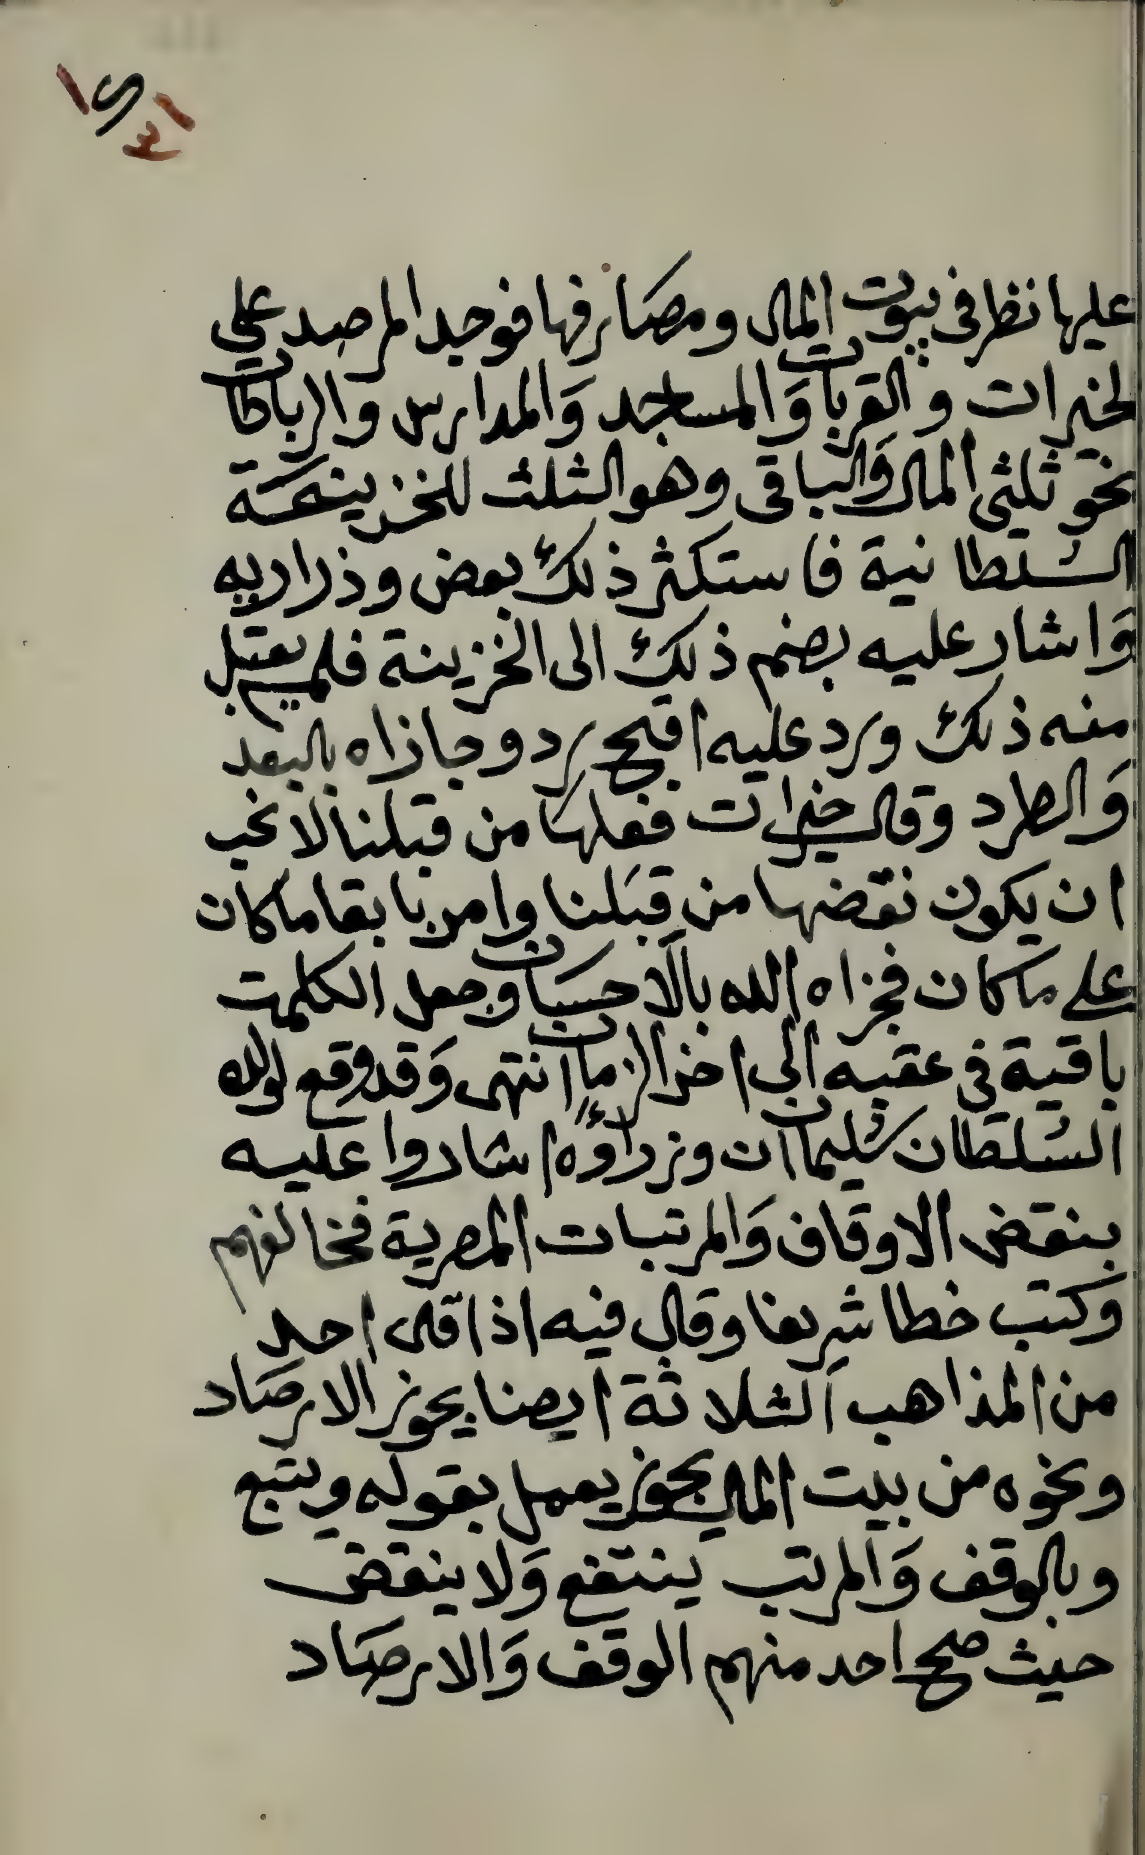 عليها نظر فى بيوت المال ومصارفها فوجد المرصد على
الخيرات والقربات والمساجد والمدارس والرباطات
نحو ثلثى المال والباقى وهو الثلث للخزينة
السلطانية فاستكثر ذلك بعض وذراريه
واشار عليه بضم ذلك الى الخزينة فلم يقبل
منه ذلك ورد عليه اقبح رد وجازاه بالبعد
والطرد وقال خيرات فعلها من قبلنا لا نحب
ان يكون نقضها من قبلنا وامر بابقا ما كان
على ما كان فجزاه الله بالاحسان وجعل الكلمت
باقية فى عقبه الى اخر الزمان انتهى وقد وقع لولده
السلطان سليمان ان وزراؤه اشاروا عليه
بنقض الاوقاف والمرتبات المصرية فخالفهم
وكتب خطا شريفا وقال فيه اذا قال احد
من المذاهب الثلاثة ايضا يجوز الارصاد
ونحوه من بيت المال يجوز يعمل بقوله ويتبع
وبالوقف والمرتب ينتفع ولا ينقض
حيث صح احد منهم الوقف والارصاد